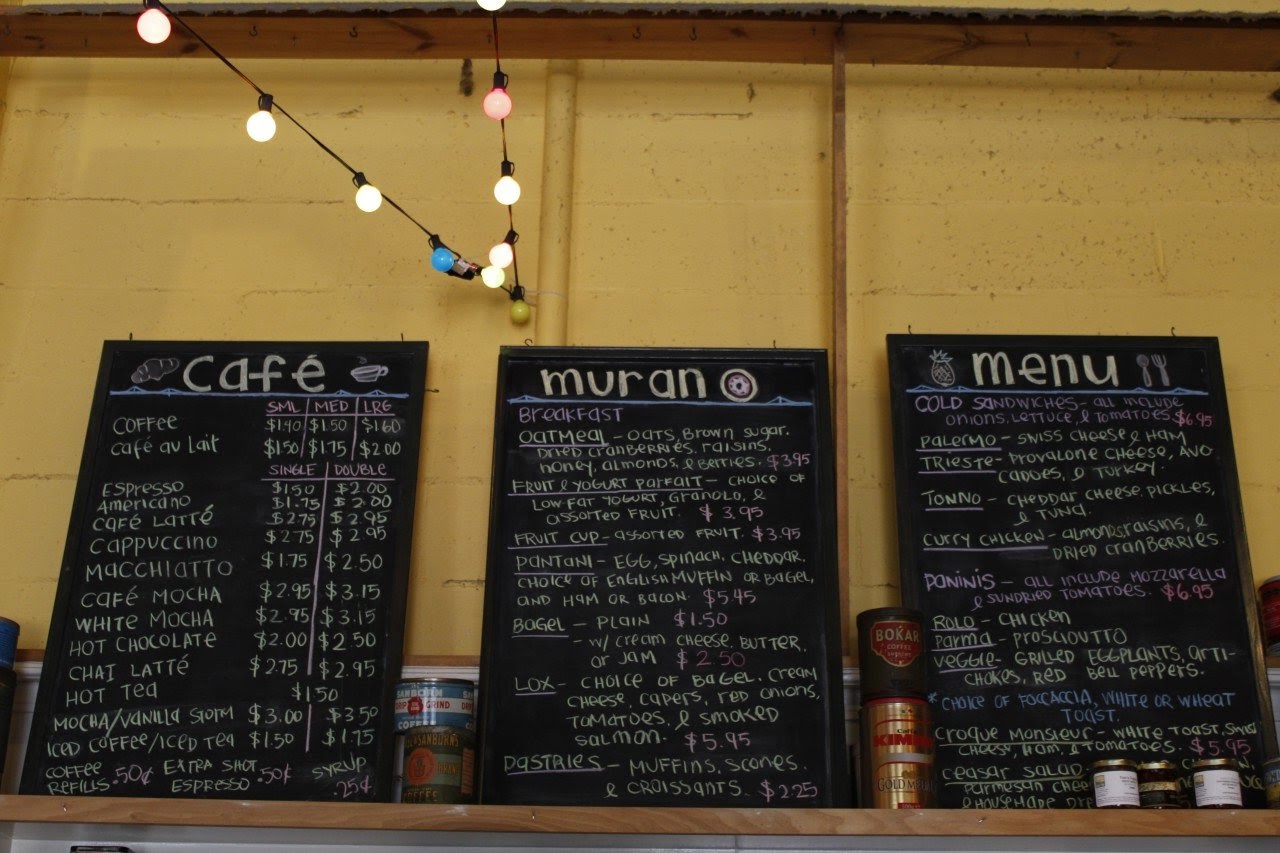 café
SML MED LRG
COFFEE $1.40 $1.50 $1.60
café au lait $1.50 $1.75 $2.00
SINGLE DOUBLE
ESPRESSO $1.50 $2.00
AMERICANO $1.75 $2.00
CAFÉ LATTÉ $2.75 $2.95
CAPPUCCINO $2.75 $2.95
MACCHIATTO $1.75 $2.50
CAFÉ MOCHA $2.95 $3.15
WHITE MOCHA $2.95 $3.15
HOT CHOCOLATE $2.00 $2.50
CHAI LATTÉ $2.75 $2.95
HOT TEA $1.50
MOCHA/VANILLA STORM $3.00 $3.50
ICED COFFEE/ICED TEA $1.50 $1.75
COFFEE REFILLS .50¢ EXTRA SHOT ESPRESSO .50¢ SYRUP .25¢
murano
BREAKFAST
OATMEAL - OATS, BROWN SUGAR.
DRIED CRANBERRIES. RAISINS.
HONEY, ALMONDS, & BERRIES. $3.95
FRUIT & YOGURT PARFAIT - CHOICE OF
LOW FAT YOGURT, GRANOLO, &
ASSORTED FRUIT. $3.95
FRUIT CUP - ASSORTED FRUIT. $3.95
PANTANI - EGG, SPINACH, CHEDDAR,
CHOICE OF ENGLISH MUFFIN OR BAGEL,
AND HAM OR BACON. $5.45
BAGEL - PLAIN $1.50
- W/ CREAM CHEESE, BUTTER,
OR JAM $2.50
LOX - CHOICE OF BAGEL. CREAM
CHEESE, CAPERS, RED ONIONS,
TOMATOES, & SMOKED
SALMON. $5.95
PASTRIES - MUFFINS, SCONES.
& CROISSANTS. $2.25
menu
COLD SANDWICHES - ALL INCLUDE
ONIONS, LETTUCE, & TOMATOES. $6.95
PALERMO - SWISS CHEESE & HAM
TRIESTE - PROVALONE CHEESE, AVO
CADOES, & TURKEY.
TONNO - CHEDDAR CHEESE, PICKLES,
& TUNA.
CURRY CHICKEN - ALMONDS, RAISINS, &
DRIED CRANBERRIES.
PANINIS - ALL INCLUDE MOZZARELLA
& SUNDRIED TOMATOES. $6.95
ROLO - CHICKEN
PARMA - PROSCIOUTTO
VEGGIE - GRILLED EGGPLANTS, ARTI-
CHOKES, RED BELL PEPPERS.
* CHOICE OF FOCCACCIA, WHITE OR WHEAT
TOAST.
CROQUE MONSIEUR - WHITE TOAST, SWISS
CHEESE, HAM, & TOMATOES. $5.95
CEASAR SALAD
PARMESAN CHEE
& HOUSEMADE DRE
BOKAR
COFFEE
SANBORN
DRIP GRIND
&SANBORNS
KIMBO
GOLD MEDAL